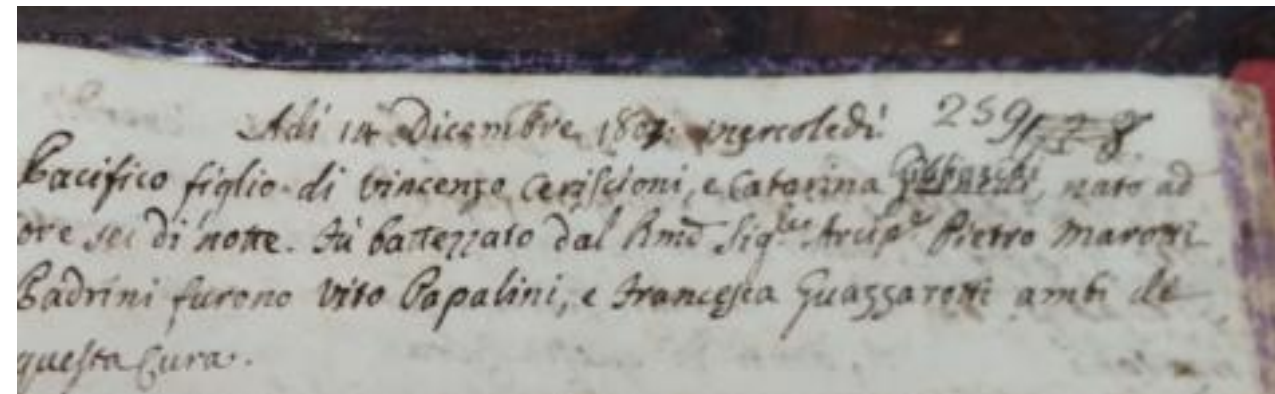 Adi 14 Dicembre 180 mercoledi 259
Pacifico figlio di Vincenzo Ceriscioni, e Catarina nato ad
ore sei di notte. Fù battezzato dal Rmo Sig.re Arcip.e Pietro Marotti
Padrini furono Vito Papalini, e Francesca Guazzarotti ambi de
questa Cura.